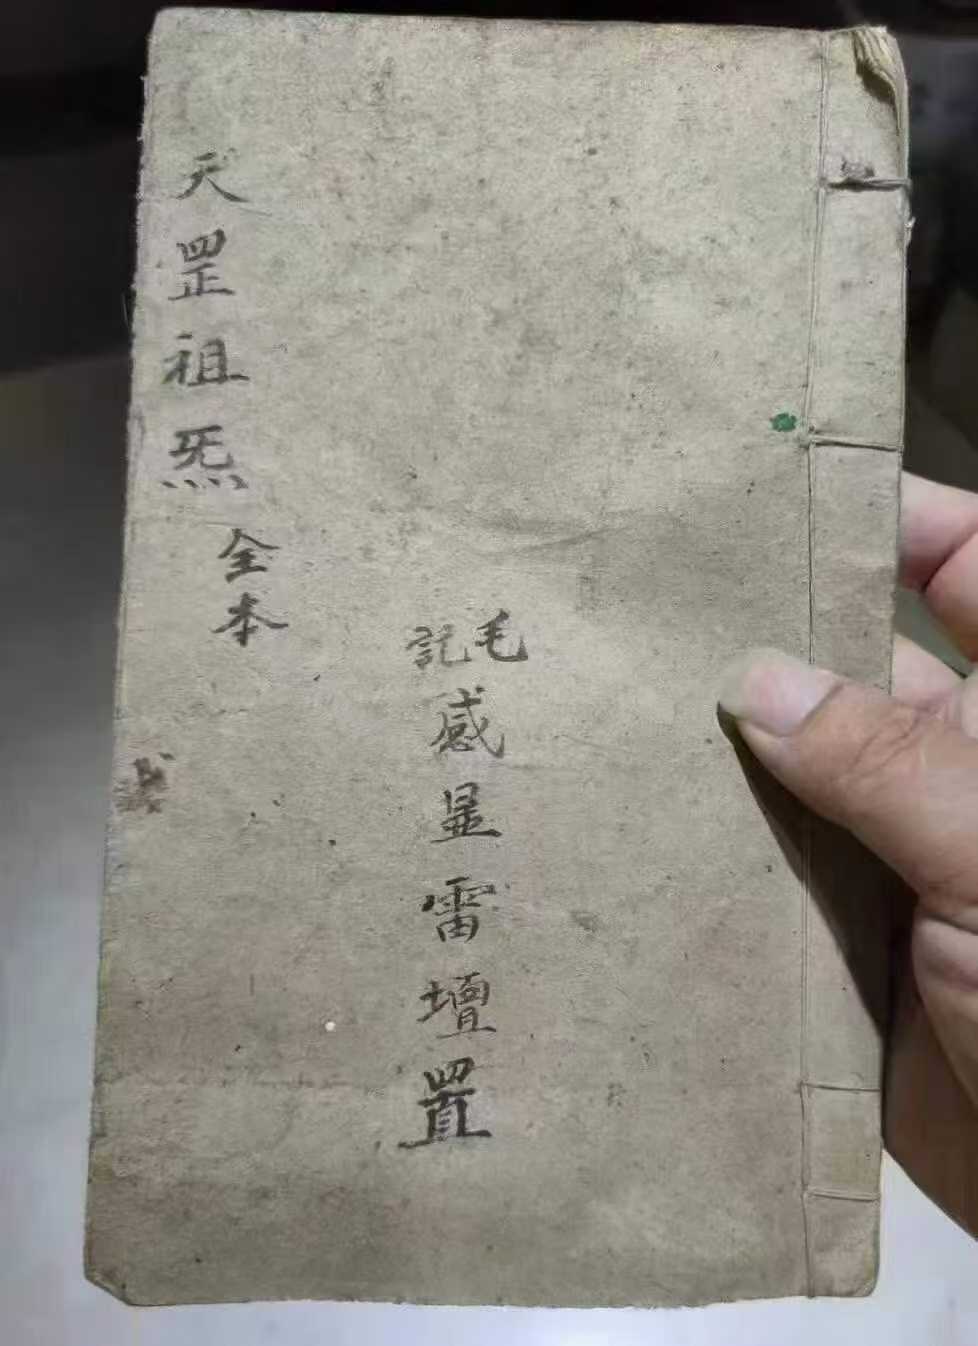 天罡祖炁全本
毛記感显雷壇置